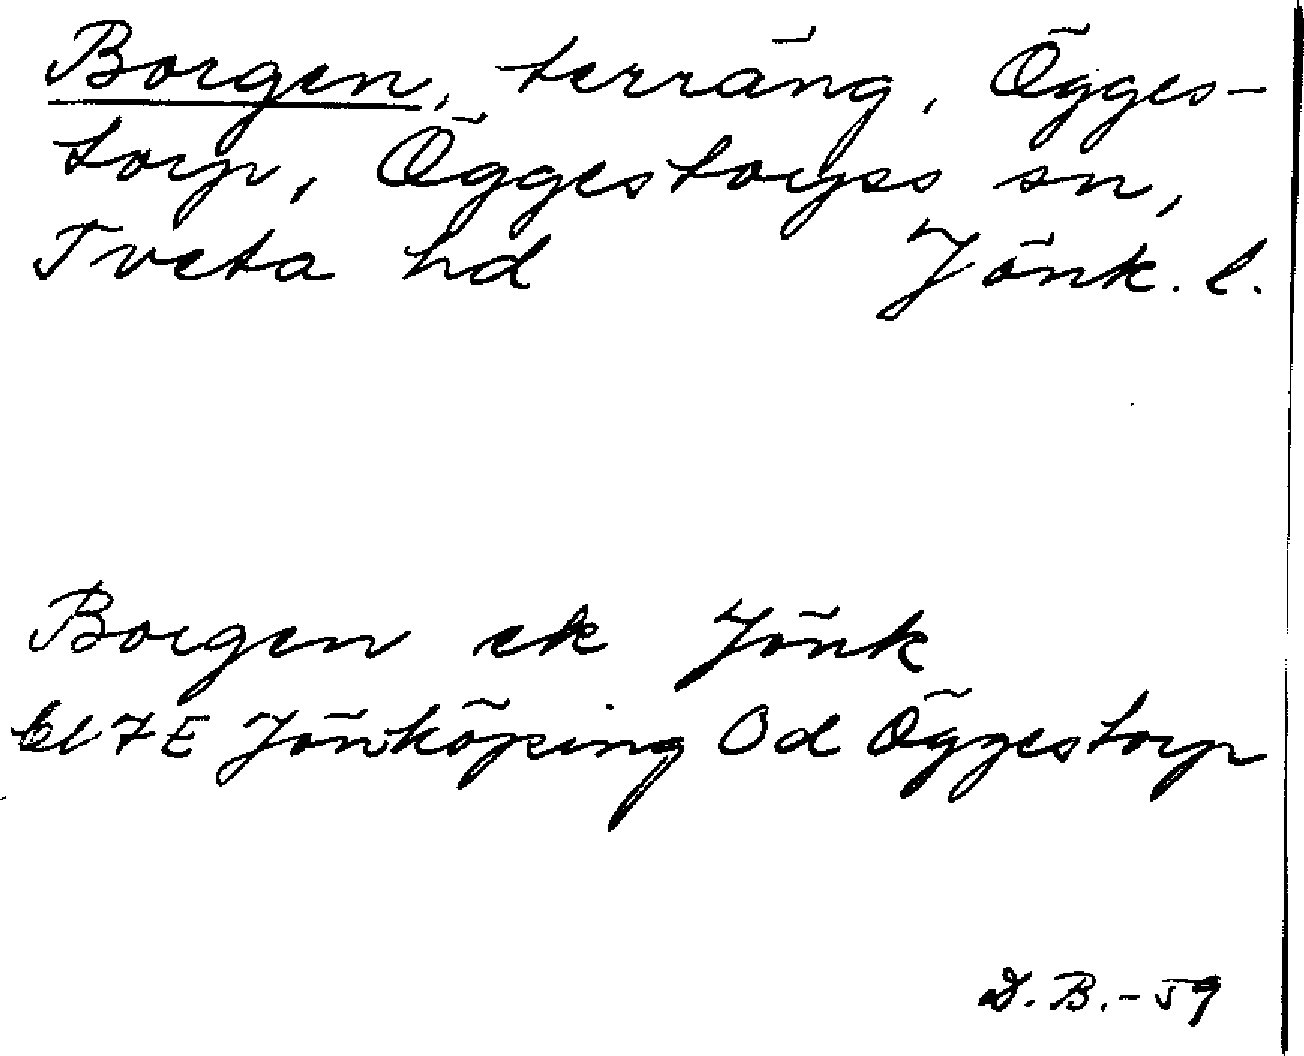 Borgen, terräng, Ögges-
torp, Öggestorps sn,
Tveta hd Jönk. l.
Borgen ek Jönk
bl 7E Jönköping Od Öggestorp
D. B. - 59